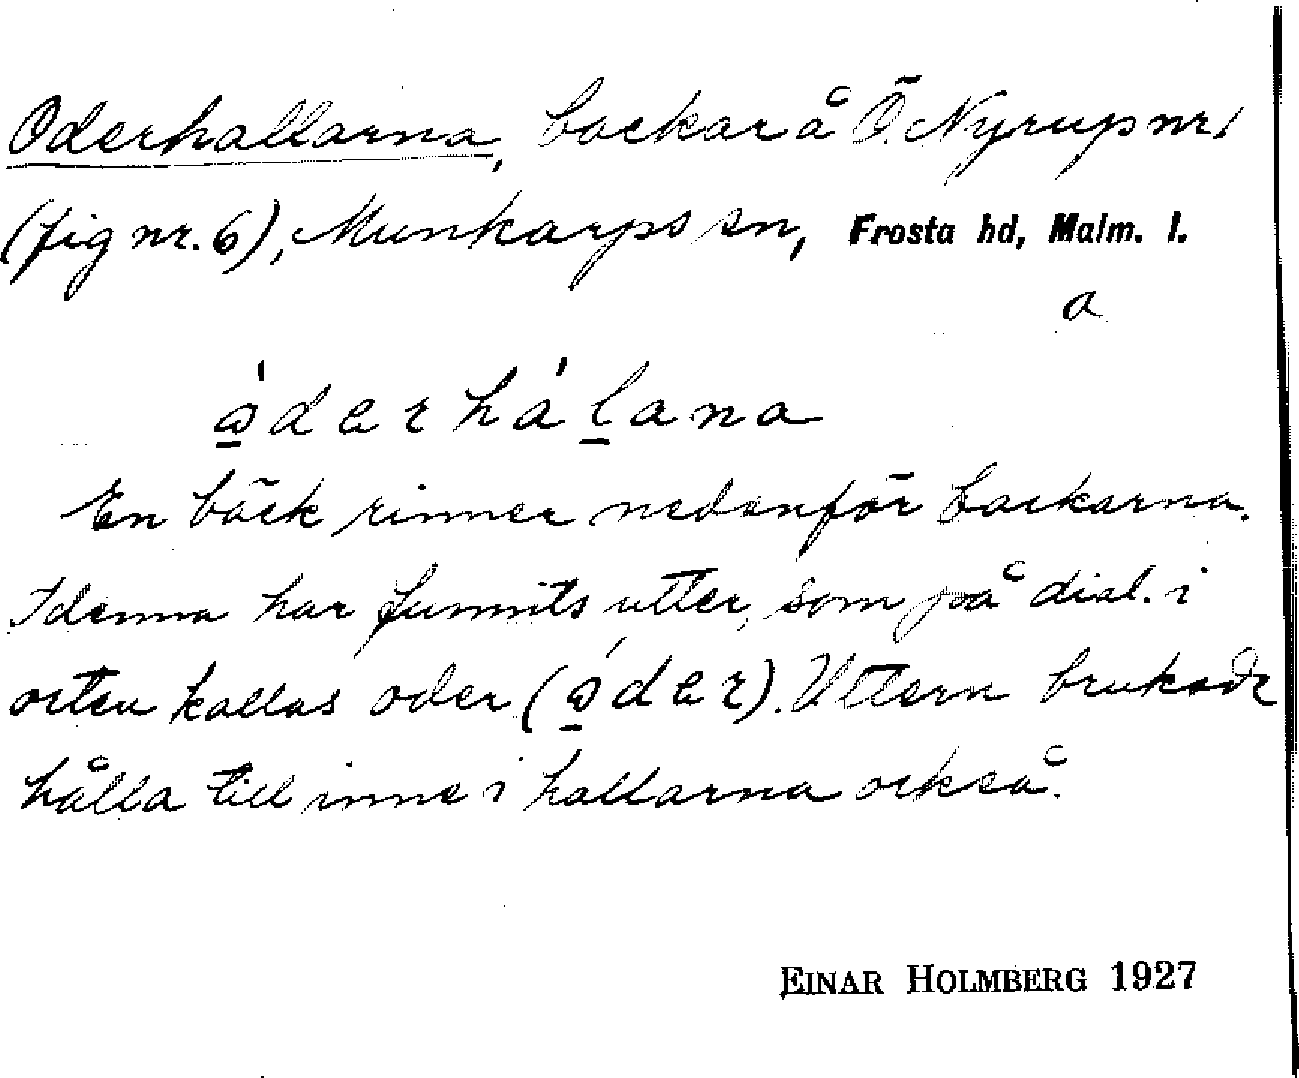 Oderhallarna, backar å Ö. Nyrup nr 1
(fig nr. 6), Munkarps sn, Frosta hd, Malm. l.
a
ɷ́derhálana
En bäck rinner nedanför backarna.
I denna har funnits utter, som på dial. i
orten kallas oder (ɷ́der). Uttern brukade
hålla till inne i hallarna också.
EINAR HOLMBERG 1927